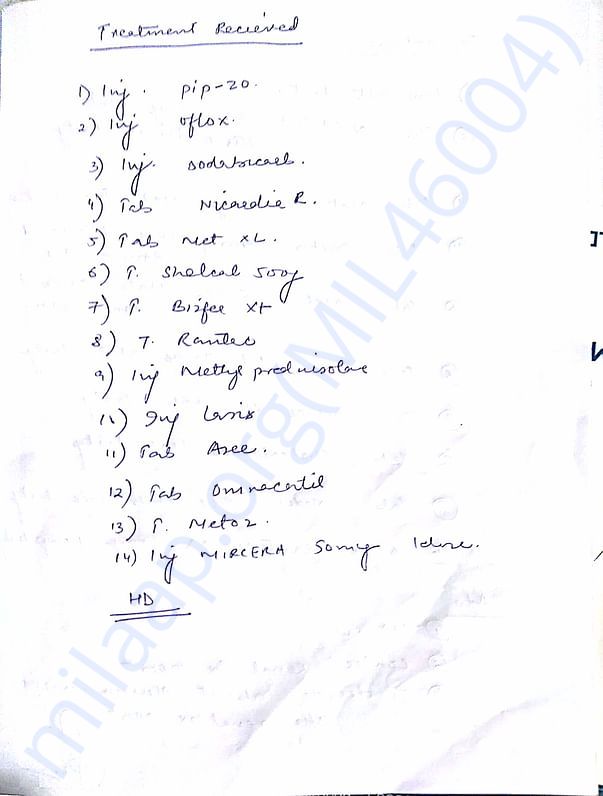 Treatment Recieved
1) Inj. pip-20.
2) Inj oflox.
3) Inj. sodabicarb.
4) Tab Nicardia R.
5) Tab Met XL.
6) T. Shelcal 500g
7) T. Bisfer XT
8) T. Rantec
9) Inj Methyl prednisolone
10) Inj Lasix
11) Tab
12) Tab Omnacortil
13) T. Metoz.
14) Inj MIRCERA 50mg 1dose.
HD
milaap.org(MIL46004)